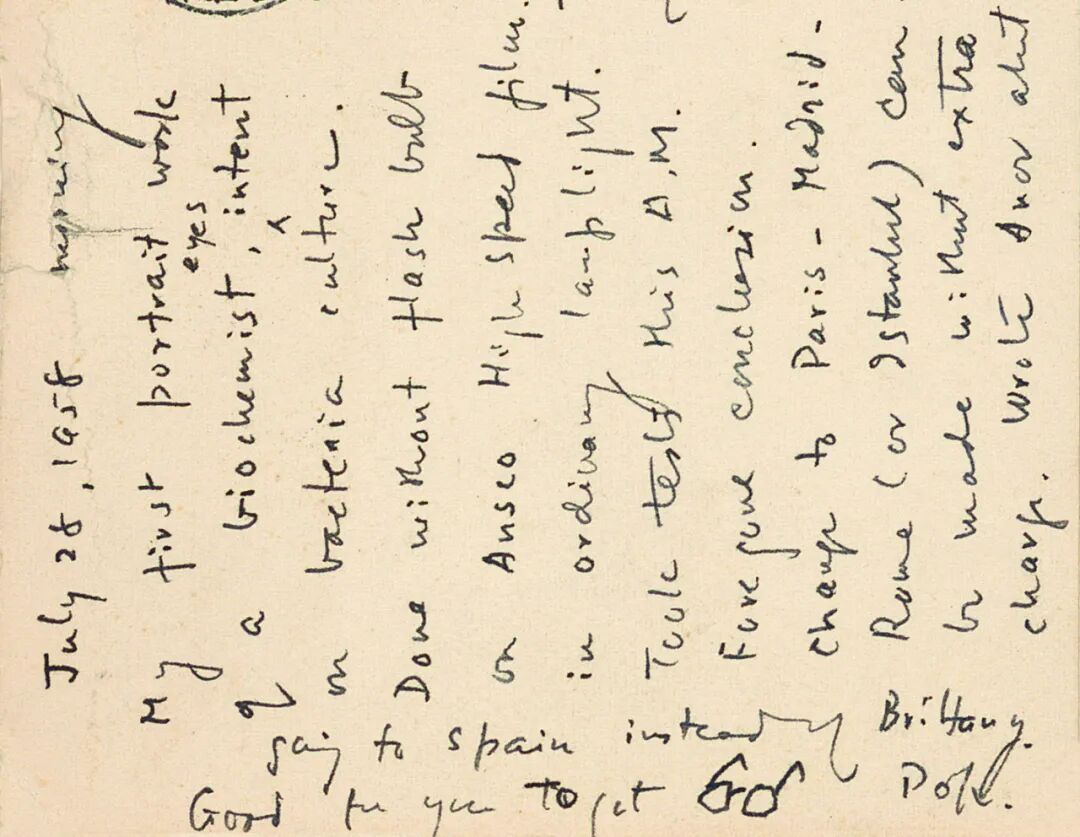 July 28, 1958 morning
My first portrait work
of a biochemist, eyes intent
on bacteria culture.
Done without flash bulb
on Ansco High speed film.
in ordinary lamplight.
Took test this A.M.
Foregone conclusion.
Change to Paris - Madrid -
Rome (or Istanbul) can
be made without extra
charge. Wrote about
going to Spain instead of Brittany.
Good for you to get Dofe.